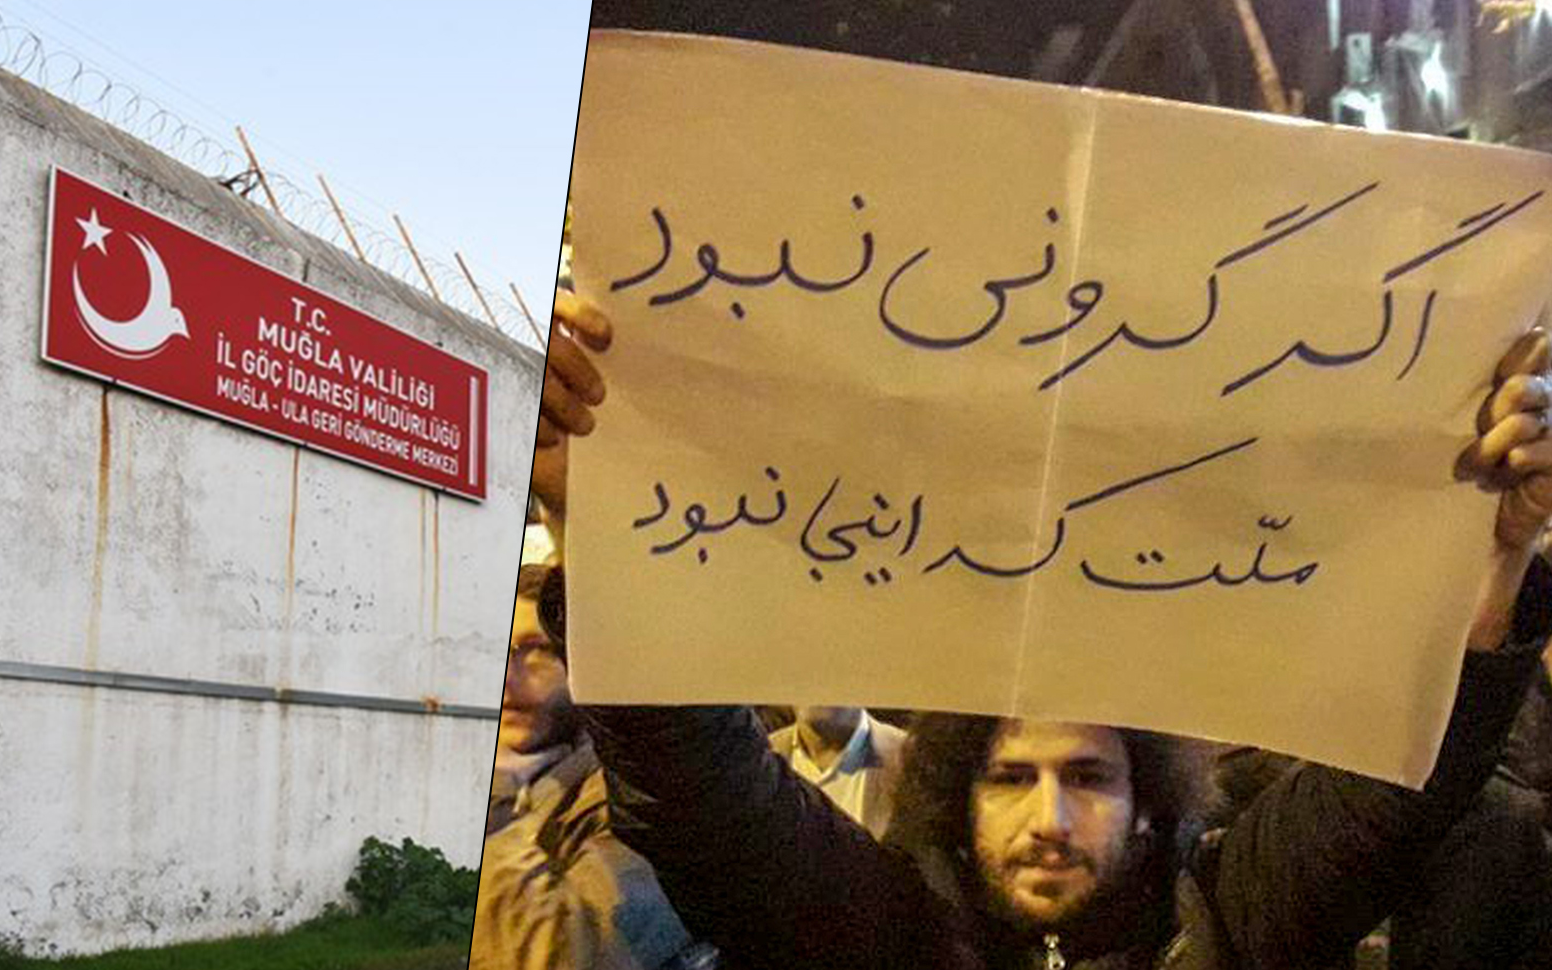 T.C.
MUĞLA VALİLİĞİ
İL GÖÇ İDARESİ MÜDÜRLÜĞÜ
MUĞLA - ULA GERİ GÖNDERME MERKEZİ
اگر گرونی نبود
ملّت که اینجا نبود